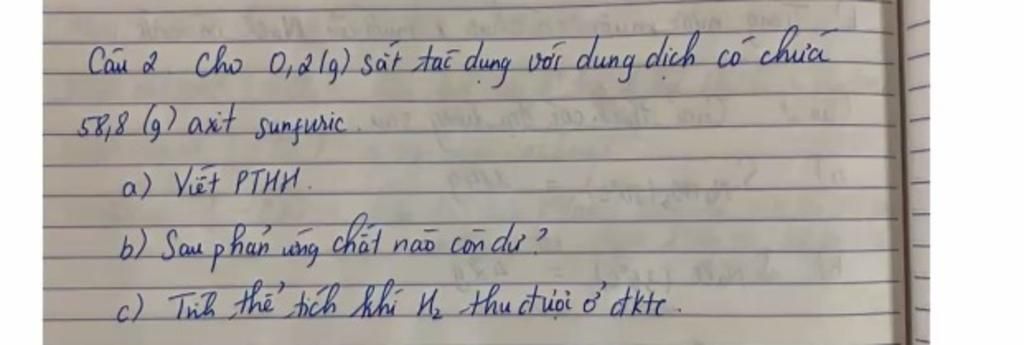 Câu 2 Cho 0,2(g) sắt tác dụng với dung dịch có chứa
58,8 (g) axit sunfuric.
a) Viết PTHH.
b) Sau phản ứng chất nào còn dư?
c) Tính thể tích khí H₂ thu được ở đktc.